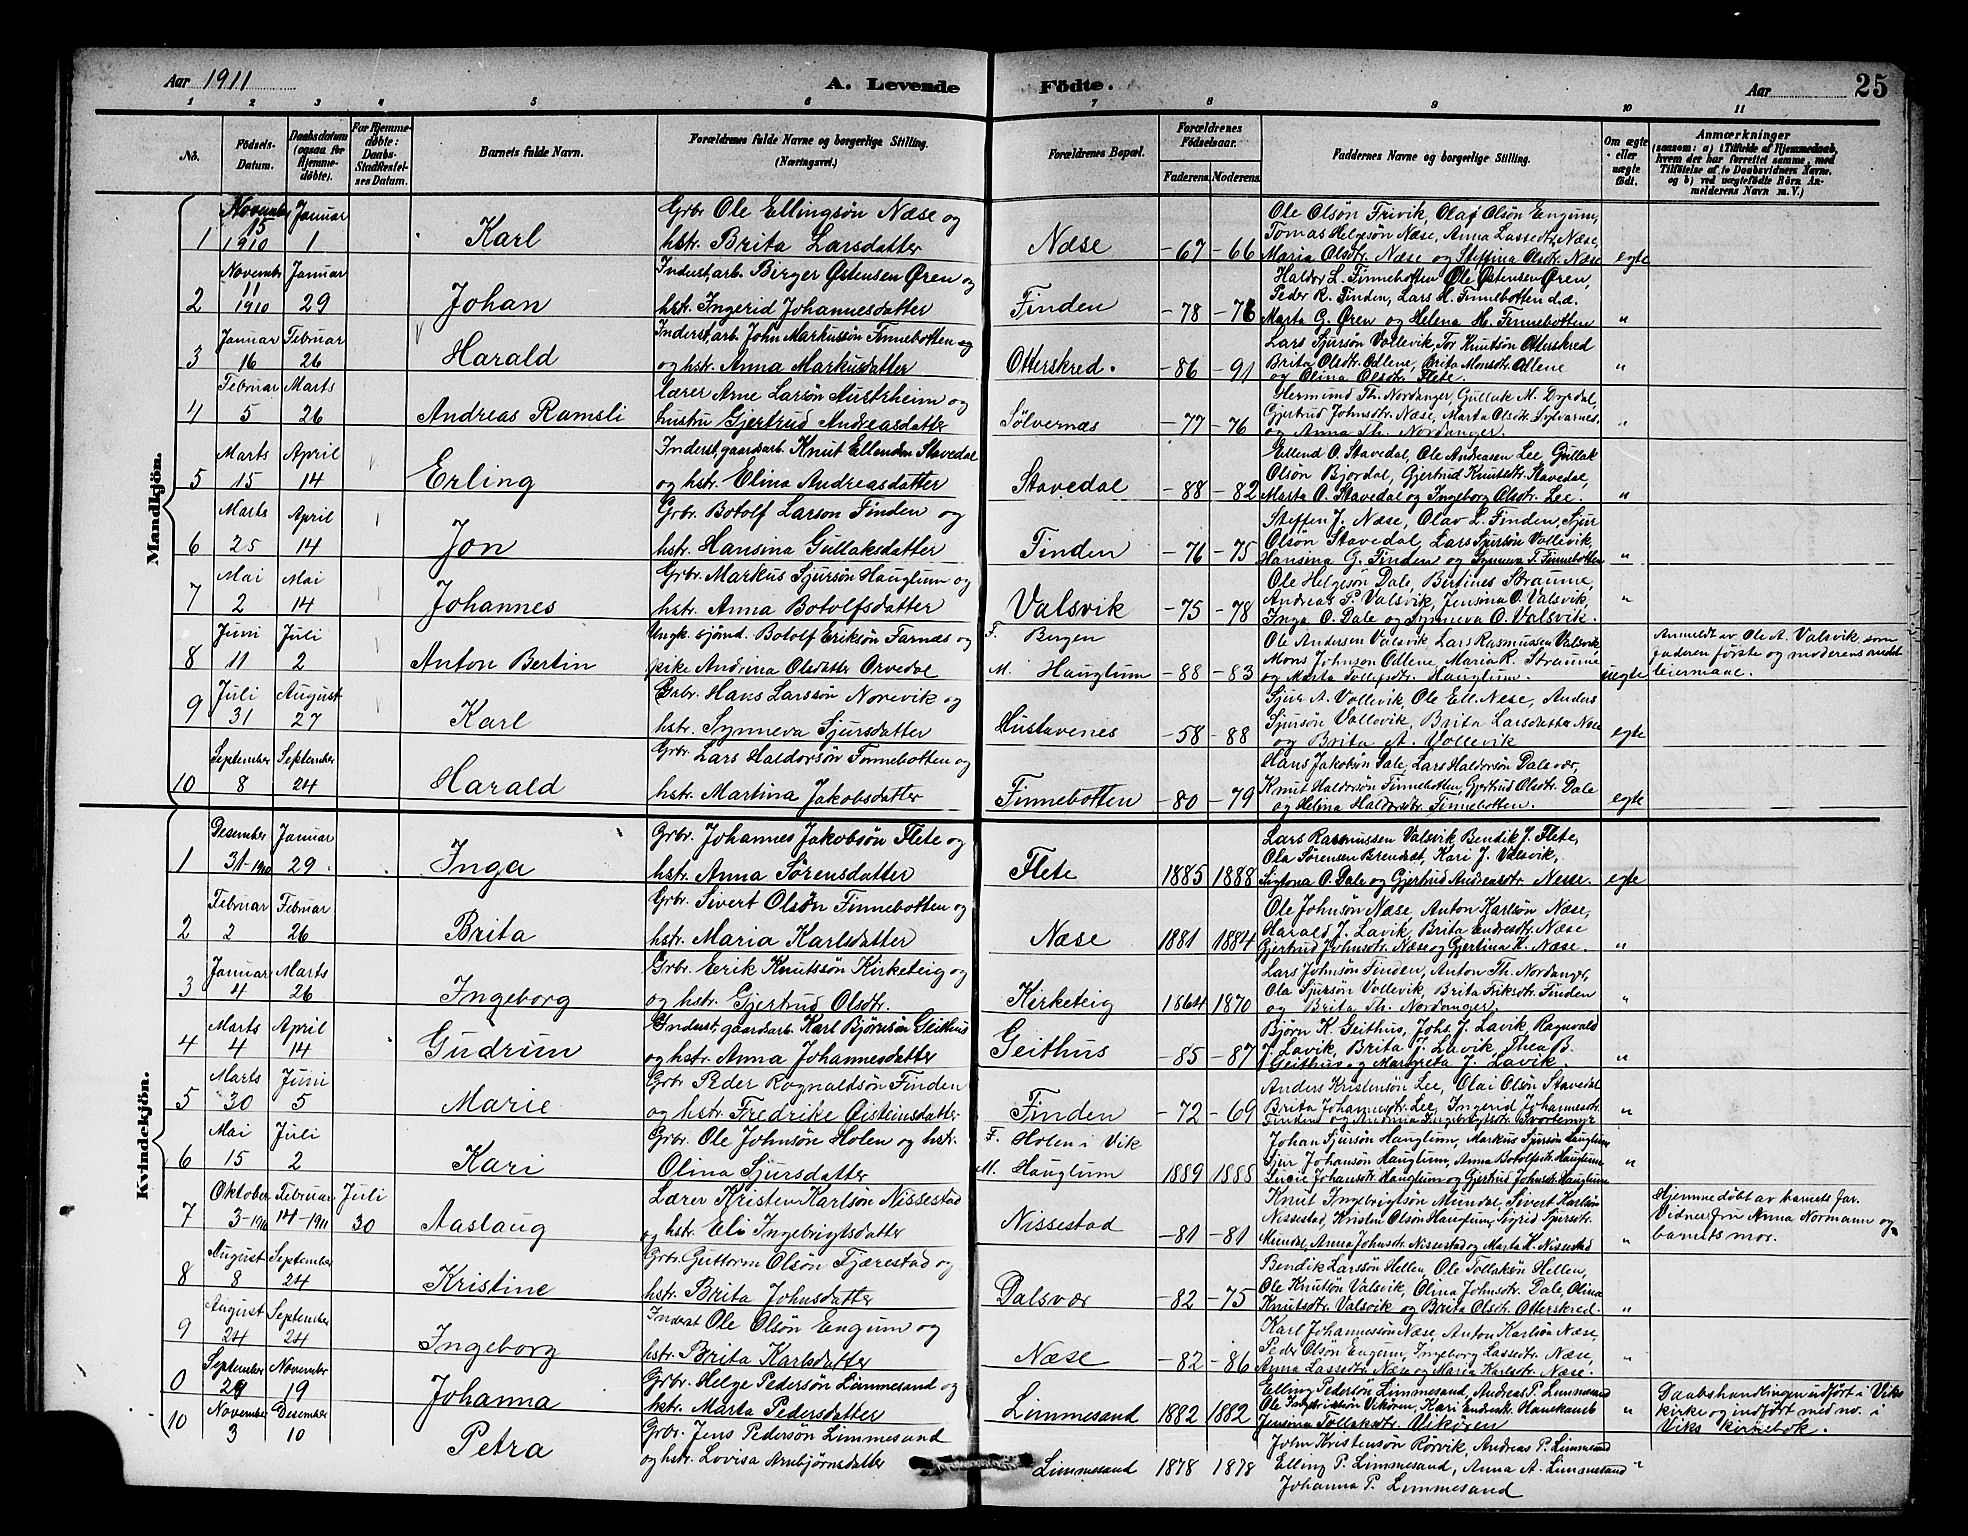 Aar 1911
A. Levende Födte.
Aar
25
1 2 3 4 5 6 7 8 9 10 11
No.
Födsels-Datum.
Daabsdatum (ogsaa for Hjemme-döbte).
For Hjemme-döbte: Daabs-Stadfæstel-ses Datum.
Barnets fulde Navn.
Forældrenes fulde Navne og borgerlige Stilling.
(Næringsvei.)
Forældrenes Bopæl.
Forældrenes Födselsaar.
Faderens. Moderens.
Faddernes Navne og borgerlige Stilling.
Om ægte eller uægte födt.
Anmærkninger
(saasom: a) i Tilfælde af Hjemmedaab,
hvem der har forrettet samme, med
Tilföielse af to Daabsvidners Navne,
og b) ved uægtefödte Börn An-
melderens Navn m. V.)
Mandkjön.
1 November 15 1910 Januar 1 Karl
Grbr Ole Ellingsön Næse og
hstr. Brita Larsdatter
Næse -67 -66
Ole Olsön Frivik, Olaf Olsön Engum,
Tomas Helgesön Næse, Anna Lassedtr. Næse,
Maria Olsdtr. Næse og Steffina Olsdtr. Næse
egte
2 November 11 1910 Januar 29 Johan
Inderst, arb. Birger Østensen Øren og
hstr. Ingerid Johannesdatter
Finden -78 -76
Haldor L. Finnebotten Ole Østensen Øren,
Peder R. Finden, Lars H. Finnebotten d.æ.
Marta G. Øren og Helena M. Finnebotten
"
3 Januar 16 Februar 26 Harald
Inderst, arb. John Markussön Finnebotten og
og hstr. Anna Markusdatter
Otterskred. -86 -91
Lars Sjursön Vollevik, Tor Knutsön Otterskred
Brita Olsdtr. Odlene, Brita Monsdtr. Odlene
og Olina Olsdtr. Flete.
"
4 Februar 5 Marts 26 Andreas Ramsli
Lærer Arne Larsön Austrheim og
hustru Gjertrud Andreasdatter
Sølvernæs -77 -76
Hermund Th. Nordanger, Gullak M. Dyrdal,
Gjertrud Johnsdtr. Næse, Marta Olsdtr. Sylvarnes,
og Anna Th. Nordanger.
"
5 Marts 15 April 14 Erling
Inderst, gaardsarb. Knut Ellendsen Stavedal
og hstr. Elina Andreasdatter
Stavedal -88 -82
Ellend O. Stavedal, Ole Andreasen Lee, Gullak
Olsön Bjordal, Gjertrud Knutsdtr. Stavedal,
Marta O. Stavedal og Ingeborg Olsdtr. Lee.
"
6 Marts 25 April 14 Jon
Grbr. Botolf Larson Finden og
hstr. Hansina Gullaksdatter
Finden -76 -75
Steffen J. Næse, Olav L. Finden, Sjur
Olsön Stavedal, Lars Sjursön Vollevik,
Hansina G. Finden og Synneva T. Finnebotten
"
7 Mai 2 Mai 14 Johannes
Grbr. Markus Sjursön Hauglum og
hstr. Anna Botolfsdatter
Valsvik -75 -78
Ole Helgesön Dale, Bertines Straume,
Andreas P. Valsvik, Jensina O. Valsvik,
Inga O. Dale og Synneva O. Valsvik.
"
8 Juni 11 Juli 2 Anton Bertin
Ungk. sjömd. Botolf Eriksön Farnæs og
pike Andrina Olsdatter Orvedal
F. Bergen
M. Hauglum -88 -83
Ole Andersen Valsvik Lars Rasmussen Valsvik
Mons Johnsen Odlene, Maria R. Straume
og Marta Tollefsdtr. Hauglum.
uegte
Anmeldt av Ole A. Valsvik som
faderen förste og moderens andet
leiermaal.
9 Juli 31 August 27 Karl
Grbr. Hans Larssön Norevik og
hstr. Synneva Sjursdatter
Hustavenes -58 -88
Sjur A. Vollevik, Ole Ell. Nese, Anders
Sjursön Vollevik, Brita Larsdatter Nese
og Brita A. Vollevik
egte
10 September 8 September 24 Harald
Grbr. Lars Haldorsön Finnebotten og
hstr. Martina Jakobsdatter
Finnebotten -80 -79
Hans Jakobsön Dale, Lars Haldorsön Dalsvær,
Knut Haldorsön Finnebotten, Gjertrud Olsdtr. Dale
og Helina Haldorsdtr. Finnebotten.
egte
Kvindekjön.
1 Desember 31-1910 Januar 29 Inga
Grbr. Johannes Jakobsön Flete og
hstr. Anna Sörensdatter
Flete 1885 1888
Lars Rasmussen Valsvik Bendik J. Flete,
Ola Sörensen Brendsæt, Kari J. Valsvik,
Sigtona O. Dale og Gjertrud Andreasdtr. Nesse.
egte
2 Februar 2 Februar 26 Brita
Grbr. Sivert Olsön Finnebotten og
hstr. Maria Karlsdatter
Næse 1881 1884
Ole Johnsön Næse, Anton Karlsön Næse,
Harald J. Lavik, Brita Endresdtr. Næse
Gjertrud Johnsdtr. Næse og Gjertina K. Næse.
"
3 Januar 4 Marts 26 Ingeborg
Grbr. Eerik Knutssön Kirketeig og
og hstr. Gjertrud Olsdtr.
Kirketeig 1864 1870
Lars Johnsön Finden, Anton Th. Nordanger,
Ola Sjursön Vollevik, Brita Eriksdtr. Finden
og Brita Th. Nordanger.
"
4 Marts 4 April 14 Gudrun
Inderst, gaardsarb. Karl Björnsön Geithus
og hstr. Anna Johannesdatter
Geithus -85 -87
Bjørn K. Geithus, Johs. J. Lavik Ragnvald
J. Lavik, Brita J. Lavik, Thea B.
Geithus og Margreta J. Lavik.
"
5 Marts 30 Juni 5 Marie
Grbr Peder Rognaldsön Finden
og hstr. Fredrike Øisteinsdatter
Finden -72 -69
Anders Kristensön Lee, Olai Olsön Stavedal
Brita Johannesdtr. Lee, Ingerid Johannesdtr.
Finden og Andrina Ingebrigtsdtr. Svortemyr
"
6 Mai 15 Juli 2 Kari
Grbr. Ole Johnsön Holen og hstr.
Olina Sjursdatter
F. Holen i Vik
M. Hauglum 1889 1888
Johan Sjursön Hauglum, Markus Sjursön Hauglum
Sjur Johansön Hauglum, Anna Botolfsdtr. Hauglum
Lucie Johansdtr. Hauglum og Gjertrud Johnsdtr. Hauglum
"
7 Oktober 3-1910 Februar 14-1911 Juli 30 Aaslaug
Lærer Kristen Karlsön Nissestad
og hstr. Eli Ingebrigtsdatter
Nissestad -81 -81
Knut Ingebrigtsön Mundal, Sivert Karlsön
Nissestad, Kristen Olsön Hauglum, Sigrid Sjursdtr.
Mundal, Anna Johnsdtr. Nissestad og Marta K. Nissestad
"
Hjemmedöbt av barnets far.
Vidner fru Anna Normann og
barnets mor.
8 August 8 September 24 Kristine
Grbr. Guttorm Olsön Tjærestad og
hstr. Brita Johnsdatter
Dalsvær -82 -75
Bendik Larssön Hellen, Ole Tollaksön Hellen,
Ole Knutsön Valsvik, Olina Johnsdtr. Dale, Olina
Knutsdtr. Valsvik og Brita Olsdtr. Otterskred.
"
9 August 24 September 24 Ingeborg
Inderst Ole Olsön Engum og
hstr. Brita Karlsdatter
Næse -82 -86
Karl Johannessön Næse, Anton Karlsön Næse,
Peder Olsön Engum, Ingeborg Lassedtr. Næse,
Anna Lassedtr. Næse og Maria Karlsdtr. Næse.
"
0 September 29 November 19 Johanna
Grbr. Helge Pedersön Limmesand og
hstr. Marta Pedersdatter
Limmesand 1882 1882
Elling Pederson Limmesand, Andreas P. Limmesand
Ole Vikören, Kari Endresdtr. Hanekamb
Jensina Tollaksdtr. Vikören
"
Daabshandlingen utfört i Viks
kirke og indfört med no. i
Viks kirkebok.
10 November 3 Desember 10 Petra
Grbr. Jens Pedersön Limmesand
og hstr. Lovisa Arnbjörnsdatter
Limmesand 1878 1878
John Kristensön Rörvik, Andreas P. Limmesand
Elling P. Limmesand, Anna A. Limmesand
Johanna P. Limmesand
"